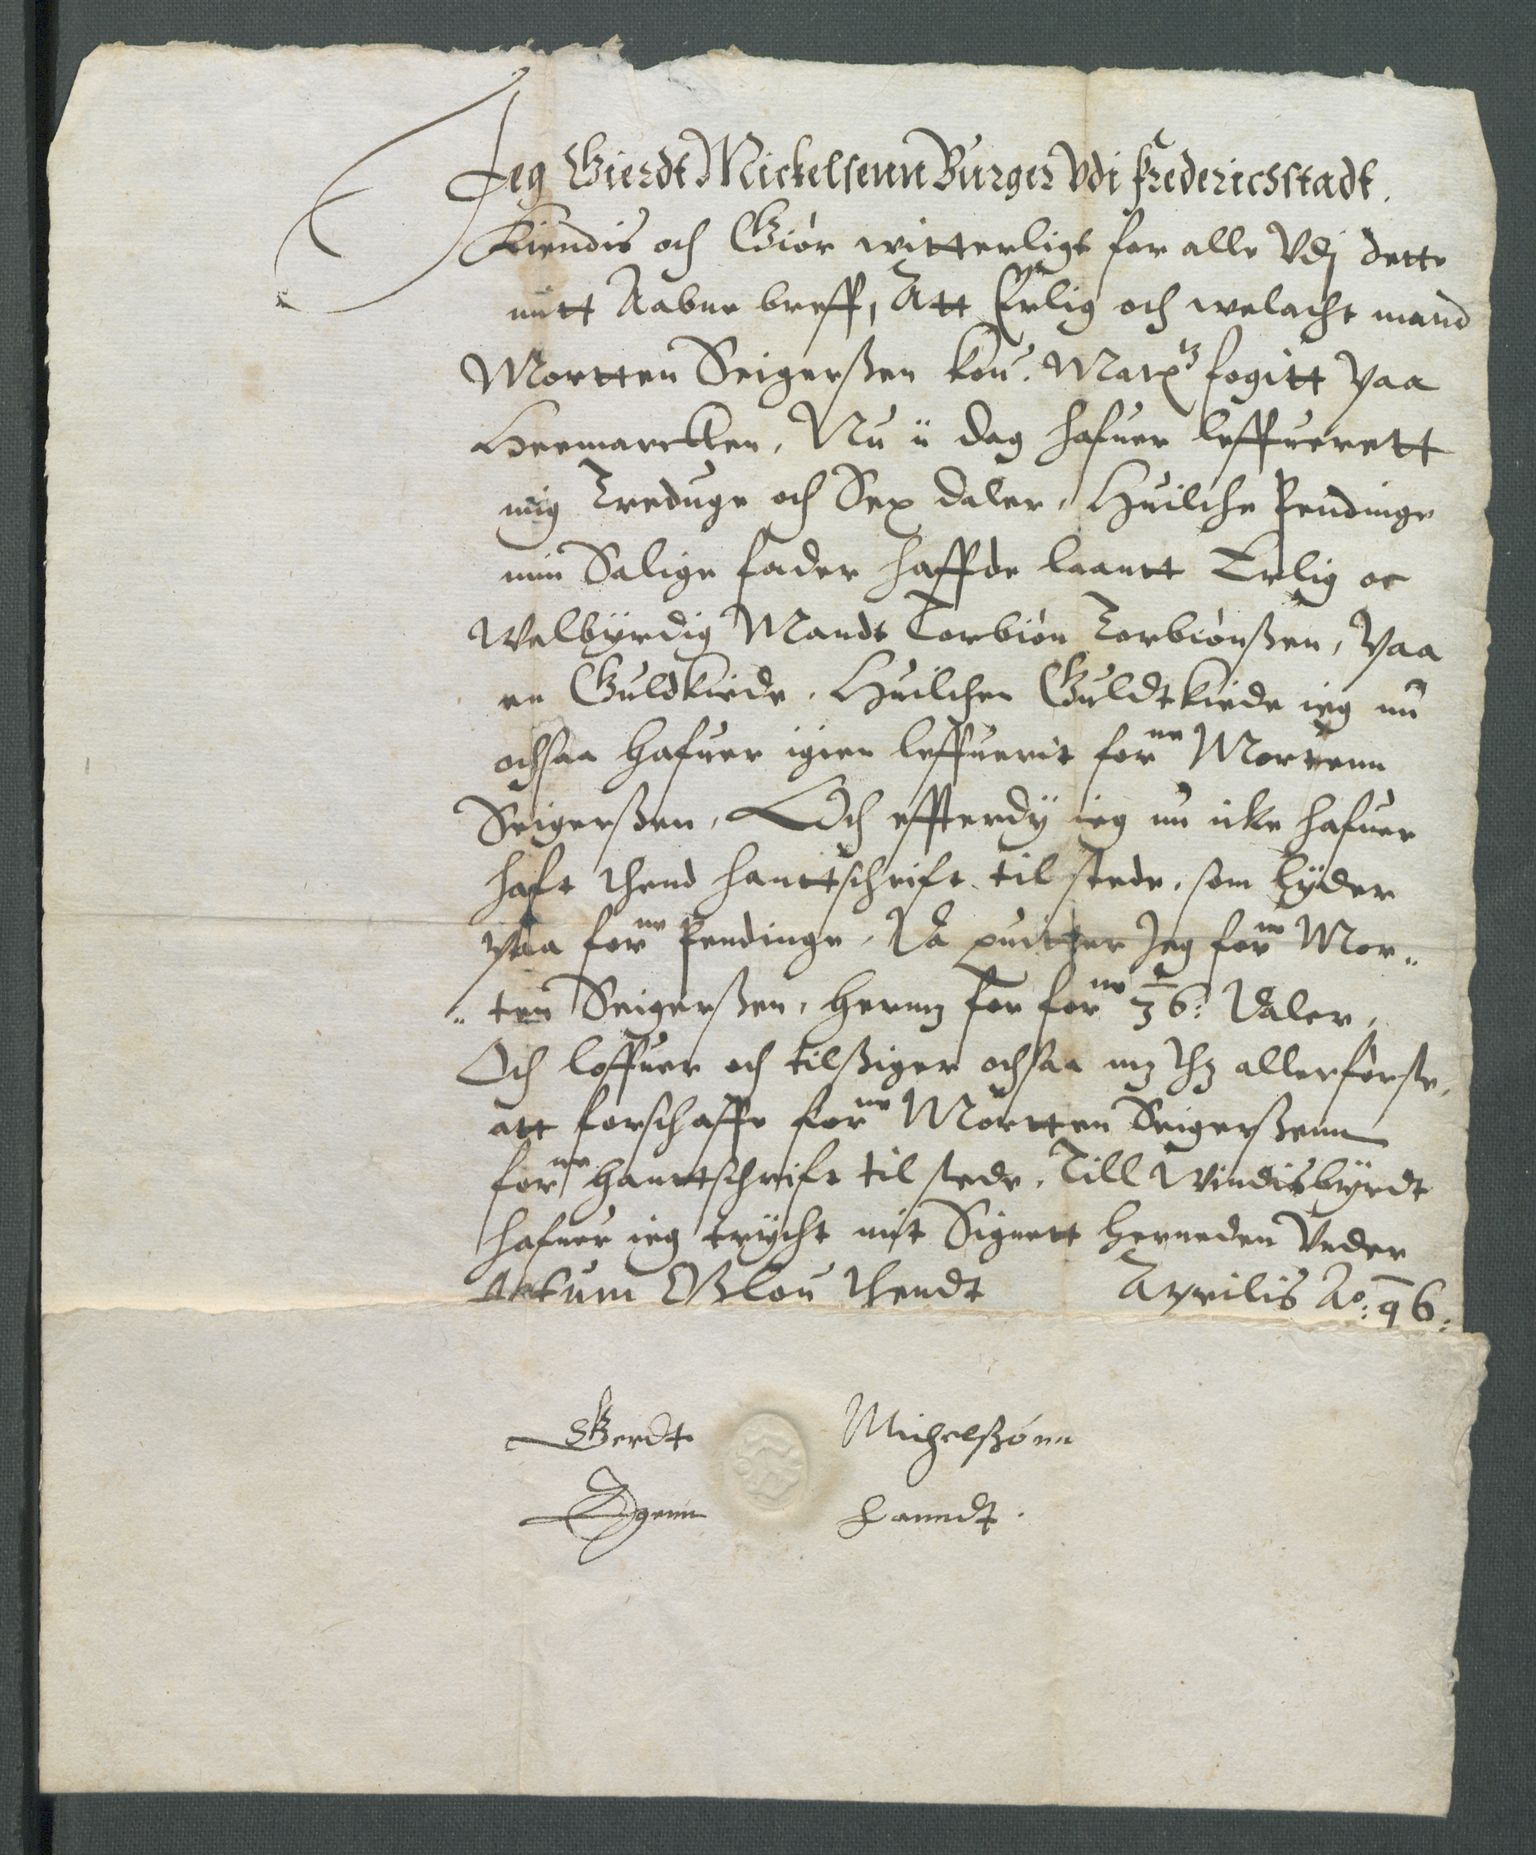 Jeg Gierdt Mickelsenn Burger Vdi Frederichsstadt.
Kiendis och Giör witterligt for alle Vdj dette
mitt Aabne breff, Att Erlig och welacht mand
Mortten Seigerßen Kon: Maytz fogitt paa
Heemarcken, Nu ii dag hafuer leffuerett
mig Treduge och Sex daler, Huilche Pendinge
min Salige fader haffde laantt Erlig oc
Welbÿrdig Mandt Torbiön Torbiönßen, paa
en Guldkiede. Huilchen Guldtkiede ieg nu
ochsaa hafuer igien leffuerit forne Mortenn
Seigerßen, Och effterdÿ ieg nu icke hafuer
haft thend hanttschrift til stede, som lÿder
paa forne Pendinge, Da quitter Jeg forne Mor„
„ten Seigerßen, hermz for forne 36: Daler,
Och loffuer och tilßiger ochsaa mz thz allerförste,
att forschaffe forne Mortten Seigerßenn
forne hanttschrift til stede. Till Windisbÿrdt
hafuer ieg trÿcht mit Signett herneden Under
Actum Oßlou thendt Aprilis Ao: 96:
Gerdt Michelßönn
Egenn Handt.